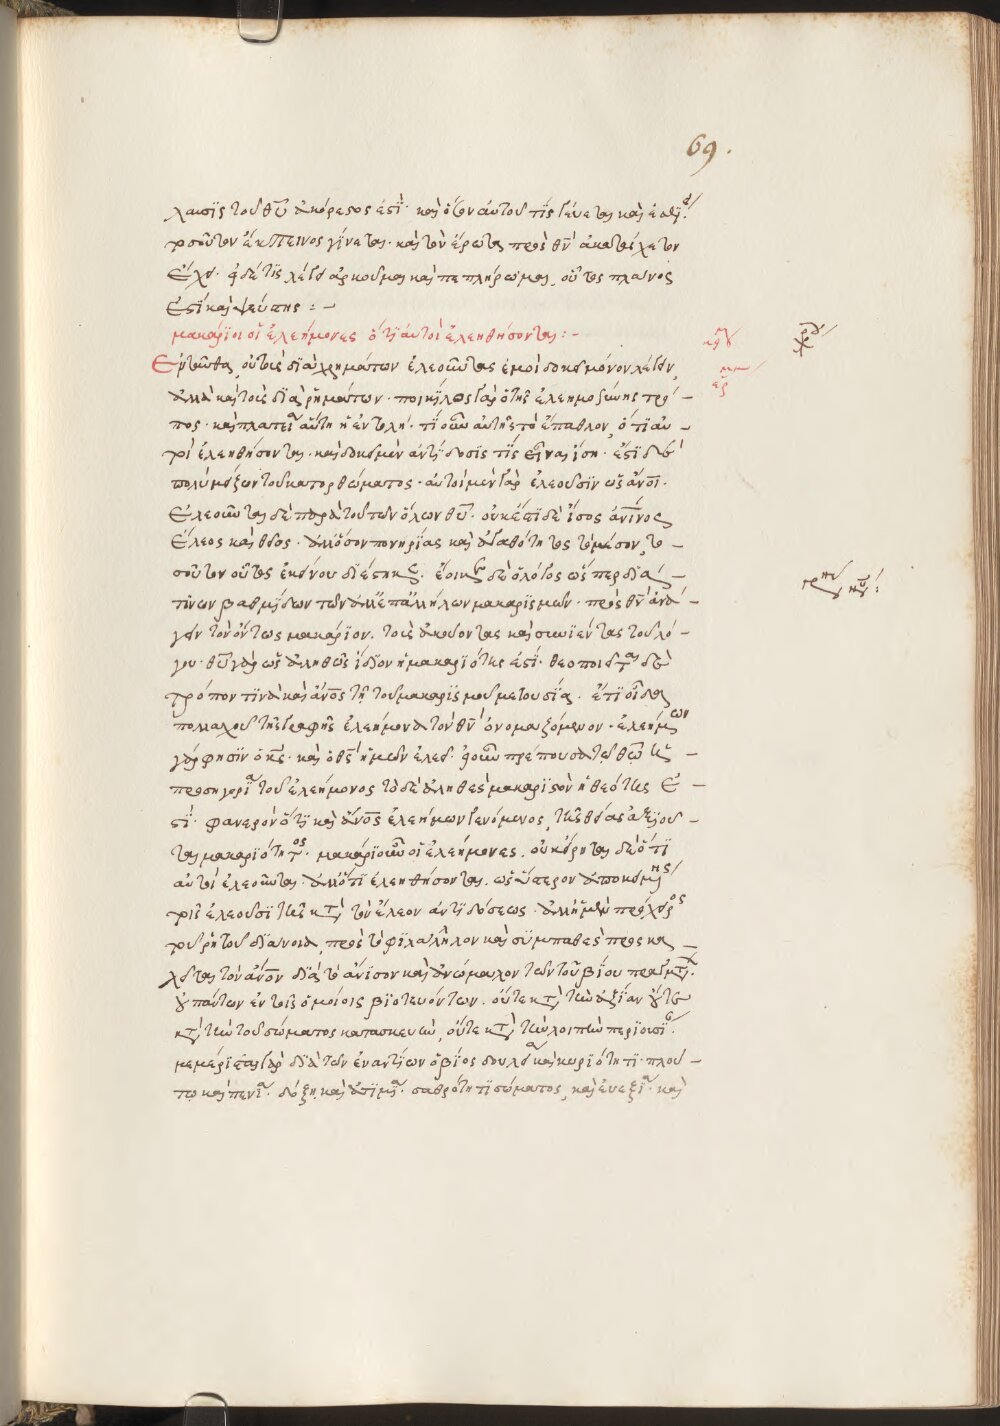 69.
λαυσις τοῦ θῦ ἀκόρεστος ἐστί. καὶ ὅσον αὐτοῦ τίς γεύεται καὶ ἐσθίει
τοσοῦτον ἔκπεινος γίνεται. καὶ τὸν ἔρωτα πρὸς θν ἀκατάσχετον
ἔχει. εἰ δέ τις λέγει ἀρκοῦμαι καὶ πεπλήρωμαι, οὗτος πλάνος
ἐστὶ καὶ ψεύστης : –
μακάριοι οἱ ἐλεήμονες ὅτι αὐτοὶ ἐλεηθήσονται : –
Ἐνταῦθα, οὐ τοὺς διὰ χρημάτων ἐλεοῦντας ἐμοὶ δοκεῖ μόνον λέγειν,
ἀλλὰ καὶ τοὺς διὰ ῥημάτων. ποικίλος γὰρ ὁ τῆς ἐλεημοσύνης τρό –
πος. καὶ πλατεῖα αὕτη ἡ ἐντολή. τί οὖν αὐτῆς τὸ ἔπαθλον, ὅτι αὐ –
τοὶ ἐλεηθήσονται. καὶ δοκεῖ μὲν ἀντίδοσις τίς εἶναι ἴση. ἔστι δὲ
πολὺ μείζων τοῦ κατορθώματος. αὐτοὶ μὲν γὰρ ἐλεοῦσιν ὡς ἄνοι.
ἐλεοῦνται δὲ παρὰ τοῦ τῶν ὅλων θῦ. οὐκ ἔστι δὲ ἴσος ἀνίνος
ἔλεος καὶ θεῖος. ἀλλ' ὅσον πονηρίας καὶ ἀγαθότητος τὸ μέσον, το –
σοῦτον οὗτος ἐκείνου διέστηκε. ἔοικε δὲ ὁ λόγος ὥσπερ διά –
τινων βαθμίδων τῶν ἀλλεπαλλήλων μακαρισμῶν. πρὸς θν ἀνά –
γειν τὸν ὄντως μακάριον. τοὺς ἀκούοντας καὶ συνιέντας τοῦ λό –
γου. θῦ γὰρ ὡς ἀληθῶς ἴδιον ἡ μακαριότης ἐστί. θεοποιεῖται δὲ
τρόπον τινὰ καὶ ἄνος τῇ τοῦ μακαρισμοῦ μετουσία. ἔτι οἶδα
πολλαχοῦ τῆς γραφῆς ἐλεήμονα τὸν θν ὀνομαζόμενον. ἐλεήμων
γάρ φησιν ὁ κς. καὶ ὁ θς ἡμῶν ἐλεεῖ. εἰ οὖν πρέπουσα τῶ θῶ ἡ –
προσηγορία τοῦ ἐλεήμονος τὸ δὲ ἀληθὲς μακαριστὸν ἡ θεότης ἐ –
στί. φανερὸν ὅτι καὶ ἄνος ἐλεήμων γενόμενος, τῆς θείας ἀξιοῦ –
ται μακαριότητος. μακάριοι οὖν οἱ ἐλεήμονες. οὐκ εἴρηται δὲ ὅτι
αὐτοὶ ἐλεοῦνται. ἀλλ' ὅτι ἐλεηθήσονται. ὡς ὕστερον ἀποκειμένης
τοῖς ἐλεοῦσι τῆς κατὰ τὸν ἔλεον ἀντιδόσεως. ἀλλ' ἡ μὲν πρόχειρος
τοῦ ῥητοῦ διάνοια, πρὸς τὸ φιλάλληλον καὶ συμπαθὲς προσκα –
λεῖται τὸν ἄνον διὰ τὸ ἄνισον καὶ ἀνώμαλον τῶν τοῦ βίου πραγμάτων.
οὐ πάντων ἐν τοῖς ὁμοίοις βιοτευόντων. οὔτε κατὰ τὴν ἀξίαν οὔτε
κατὰ τὴν τοῦ σώματος κατασκευὴν, οὔτε κατὰ τὴν λοιπὴν περιουσίαν.
μεμέρισται γὰρ διὰ τῶν ἐναντίων ὁ βίος δουλεία καὶ κυριότητι. πλού –
τω καὶ πενία. δόξη καὶ ἀτιμία. σαθρότητι σώματος, καὶ εὐεξία. καὶ